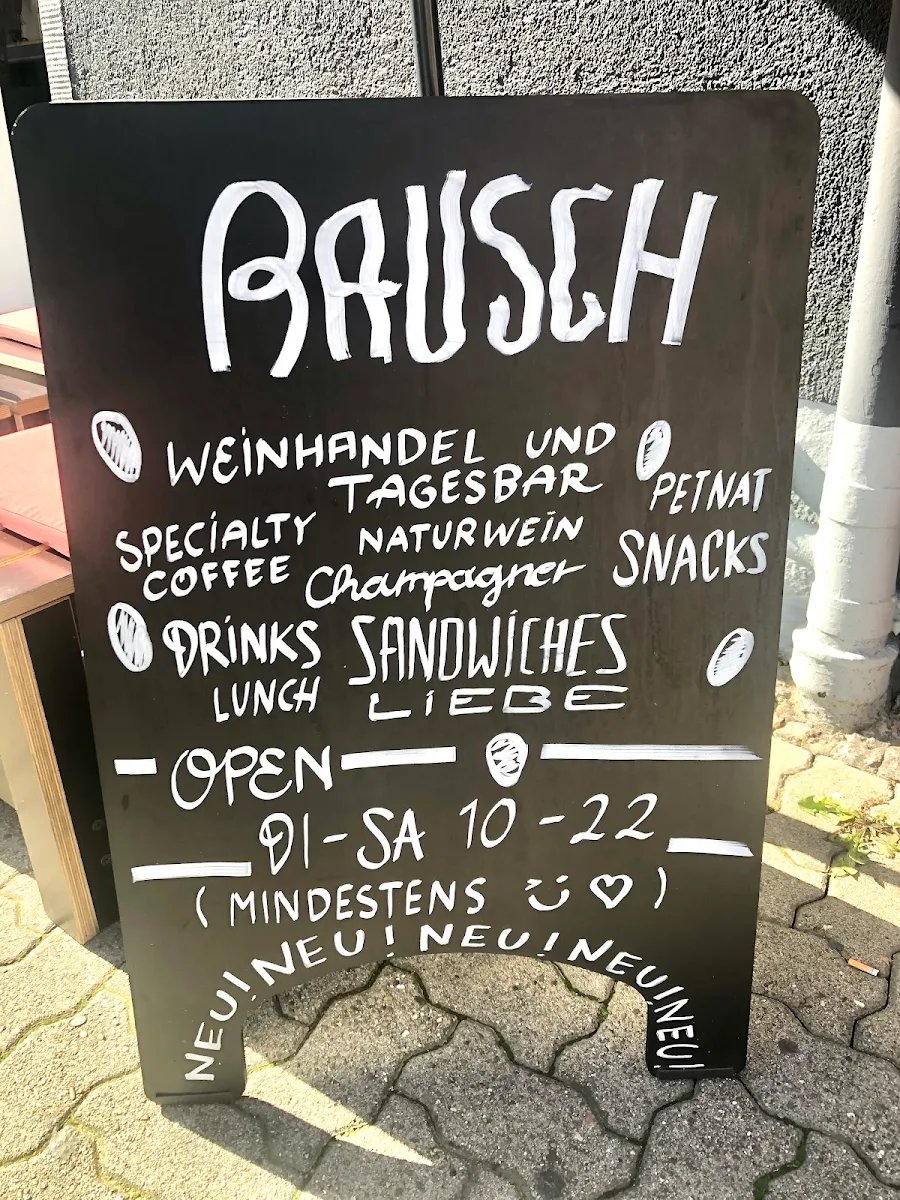 RAUSCH
WEINHANDEL UND
TAGESBAR
PETNAT
SPECIALTY
COFFEE
NATURWEIN
Champagner
SNACKS
DRINKS
SANDWICHES
LUNCH
LIEBE
OPEN
DI-SA 10-22
(MINDESTENS ü ♡)
NEU! NEU! NEU! NEU! NEU!